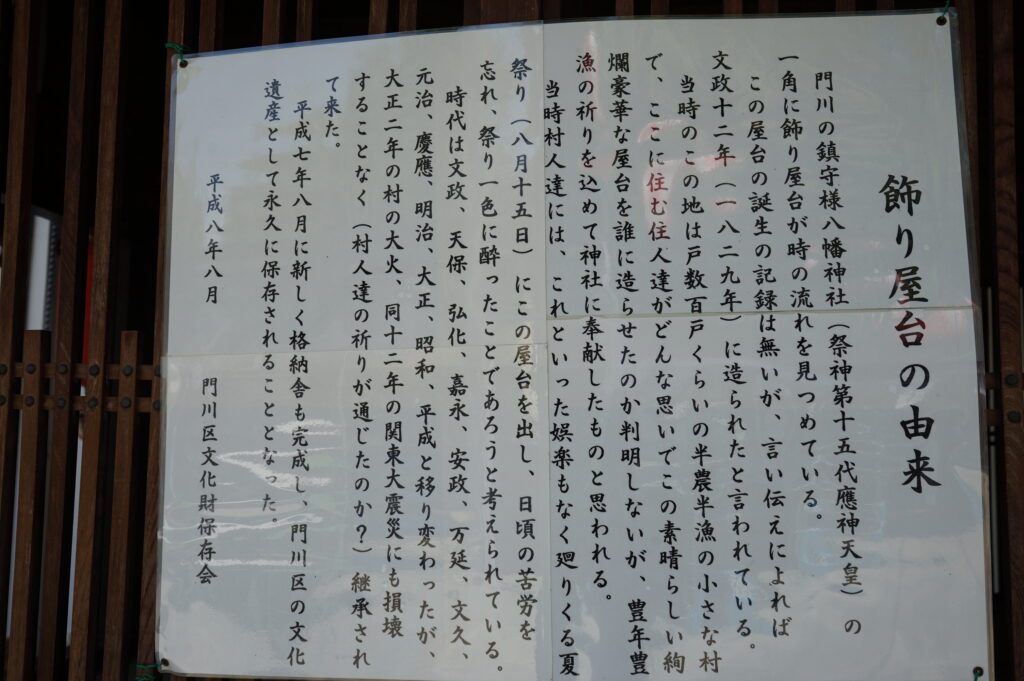 飾り屋台の由来
門川の鎮守様八幡神社（祭神第十五代應神天皇）の
一角に飾り屋台が時の流れを見つめている。
この屋台の誕生の記録は無いが、言い伝えによれば
文政十二年（一八二九年）に造られたと言われている。
当時のこの地は戸数百戸くらいの半農半漁の小さな村
で、ここに住む住人達がどんな思いでこの素晴らしい絢
爛豪華な屋台を誰に造らせたのか判明しないが、豊年豊
漁の祈りを込めて神社に奉献したものと思われる。
当時村人達には、これといった娯楽もなく廻りくる夏
祭り（八月十五日）にこの屋台を出し、日頃の苦労を
忘れ、祭り一色に酔ったことであろうと考えられている。
時代は文政、天保、弘化、嘉永、安政、万延、文久、
元治、慶應、明治、大正、昭和、平成と移り変わったが、
大正二年の村の大火、同十二年の関東大震災にも損壊
することなく（村人達の祈りが通じたのか？）継承され
て来た。
平成七年八月に新しく格納舎も完成し、門川区の文化
遺産として永久に保存されることとなった。
平成八年八月
門川区文化財保存会